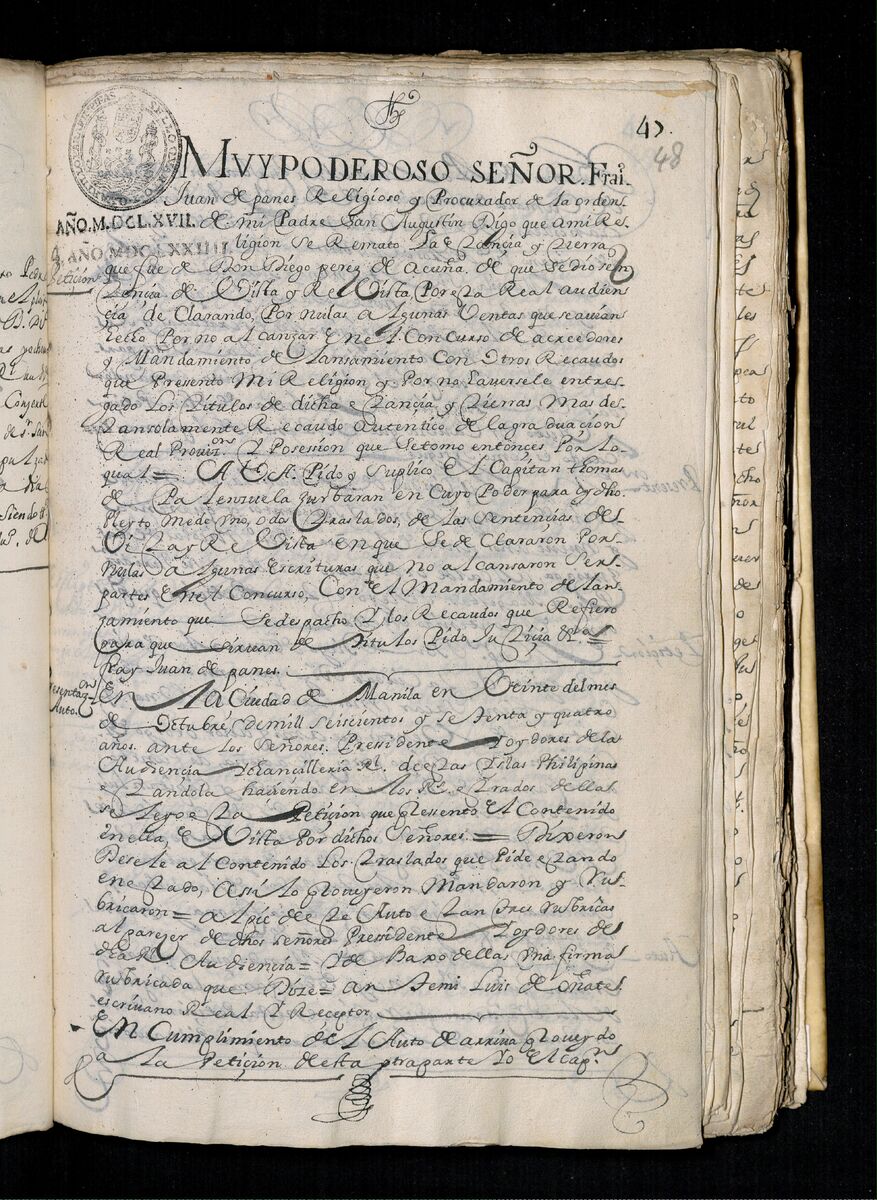 47
48
MVY PODEROSO SEÑOR. Frai.
Juan de panes Religioso y Procurador de la orden
AÑO.M.DCLXVII. de mi Padre San Augustin Digo que a mi Re-
AÑO MDCLXXIIII ligion se Remato la estancia y tierra
Petiçion que fue de Don Diego perez de acuña de que se dio sen
tencia de Vista y ReVista, Por esta Real audien
cia de Clarando, Por nulas algunas Ventas que se avian
echo Por no alcanzar en el Concurso de acreedores
y Mandamiento de lansamiento con otros Recaudos
que Presento Mi Religion y Por no haversele entre-
gado Los titulos de dicha estançia y tierras Mas de
tan solamente Recaudo autentico de la graduaçion
Real Provizon y Possesion que se tomo entonces Por lo
qual = A V.A. Pido y Suplico el Capitan thomas
de Palenzuela zurbaran en Cuyo Poder para dho
Pleyto me de Vno, o dos traslados, de las Sentencias de
Vista y ReVista en que se de Clararon Por
nulas algunas escrituras que no alcansaron Ser
partes en el Concurso, Con el Mandamiento de lan-
zamiento que se despacho y los Recaudos que Refiero
para que Siruan de titulos Pido Justiçia &ta =
fray Juan de panes.
Presentazon En la Ciudad de Manila en Veinte del mes
Auto. de Octubre de mill seiscientos y setenta y quatro
años. ante los Señores. Pressidente y oydores de la
Audiencia y chancilleria Rl. de estas Islas Philipinas
estandola haciendo en los Rs. estrados de ella
se leyo esta Petiçion que Pressento el Contenido
en ella, e Vista Por dichos Señores = Dixeron
Desele al Contenido Los traslados que Pide estando
en estado, Asi lo Proueyeron Mandaron y Ru-
bricaron = al pie de este Auto estan tres rubricas
al pareçer de dhos señores Pressidente y oydores de
dha Rl. Audiencia = y de Baxo dellas Vna firma
rubricada que Dize = ante mi Luis de oñate
escriuano Real y Receptor
En Cumplimiento de el Auto de arriua Proueydo
a la Petiçion de esta otra parte yo el capn